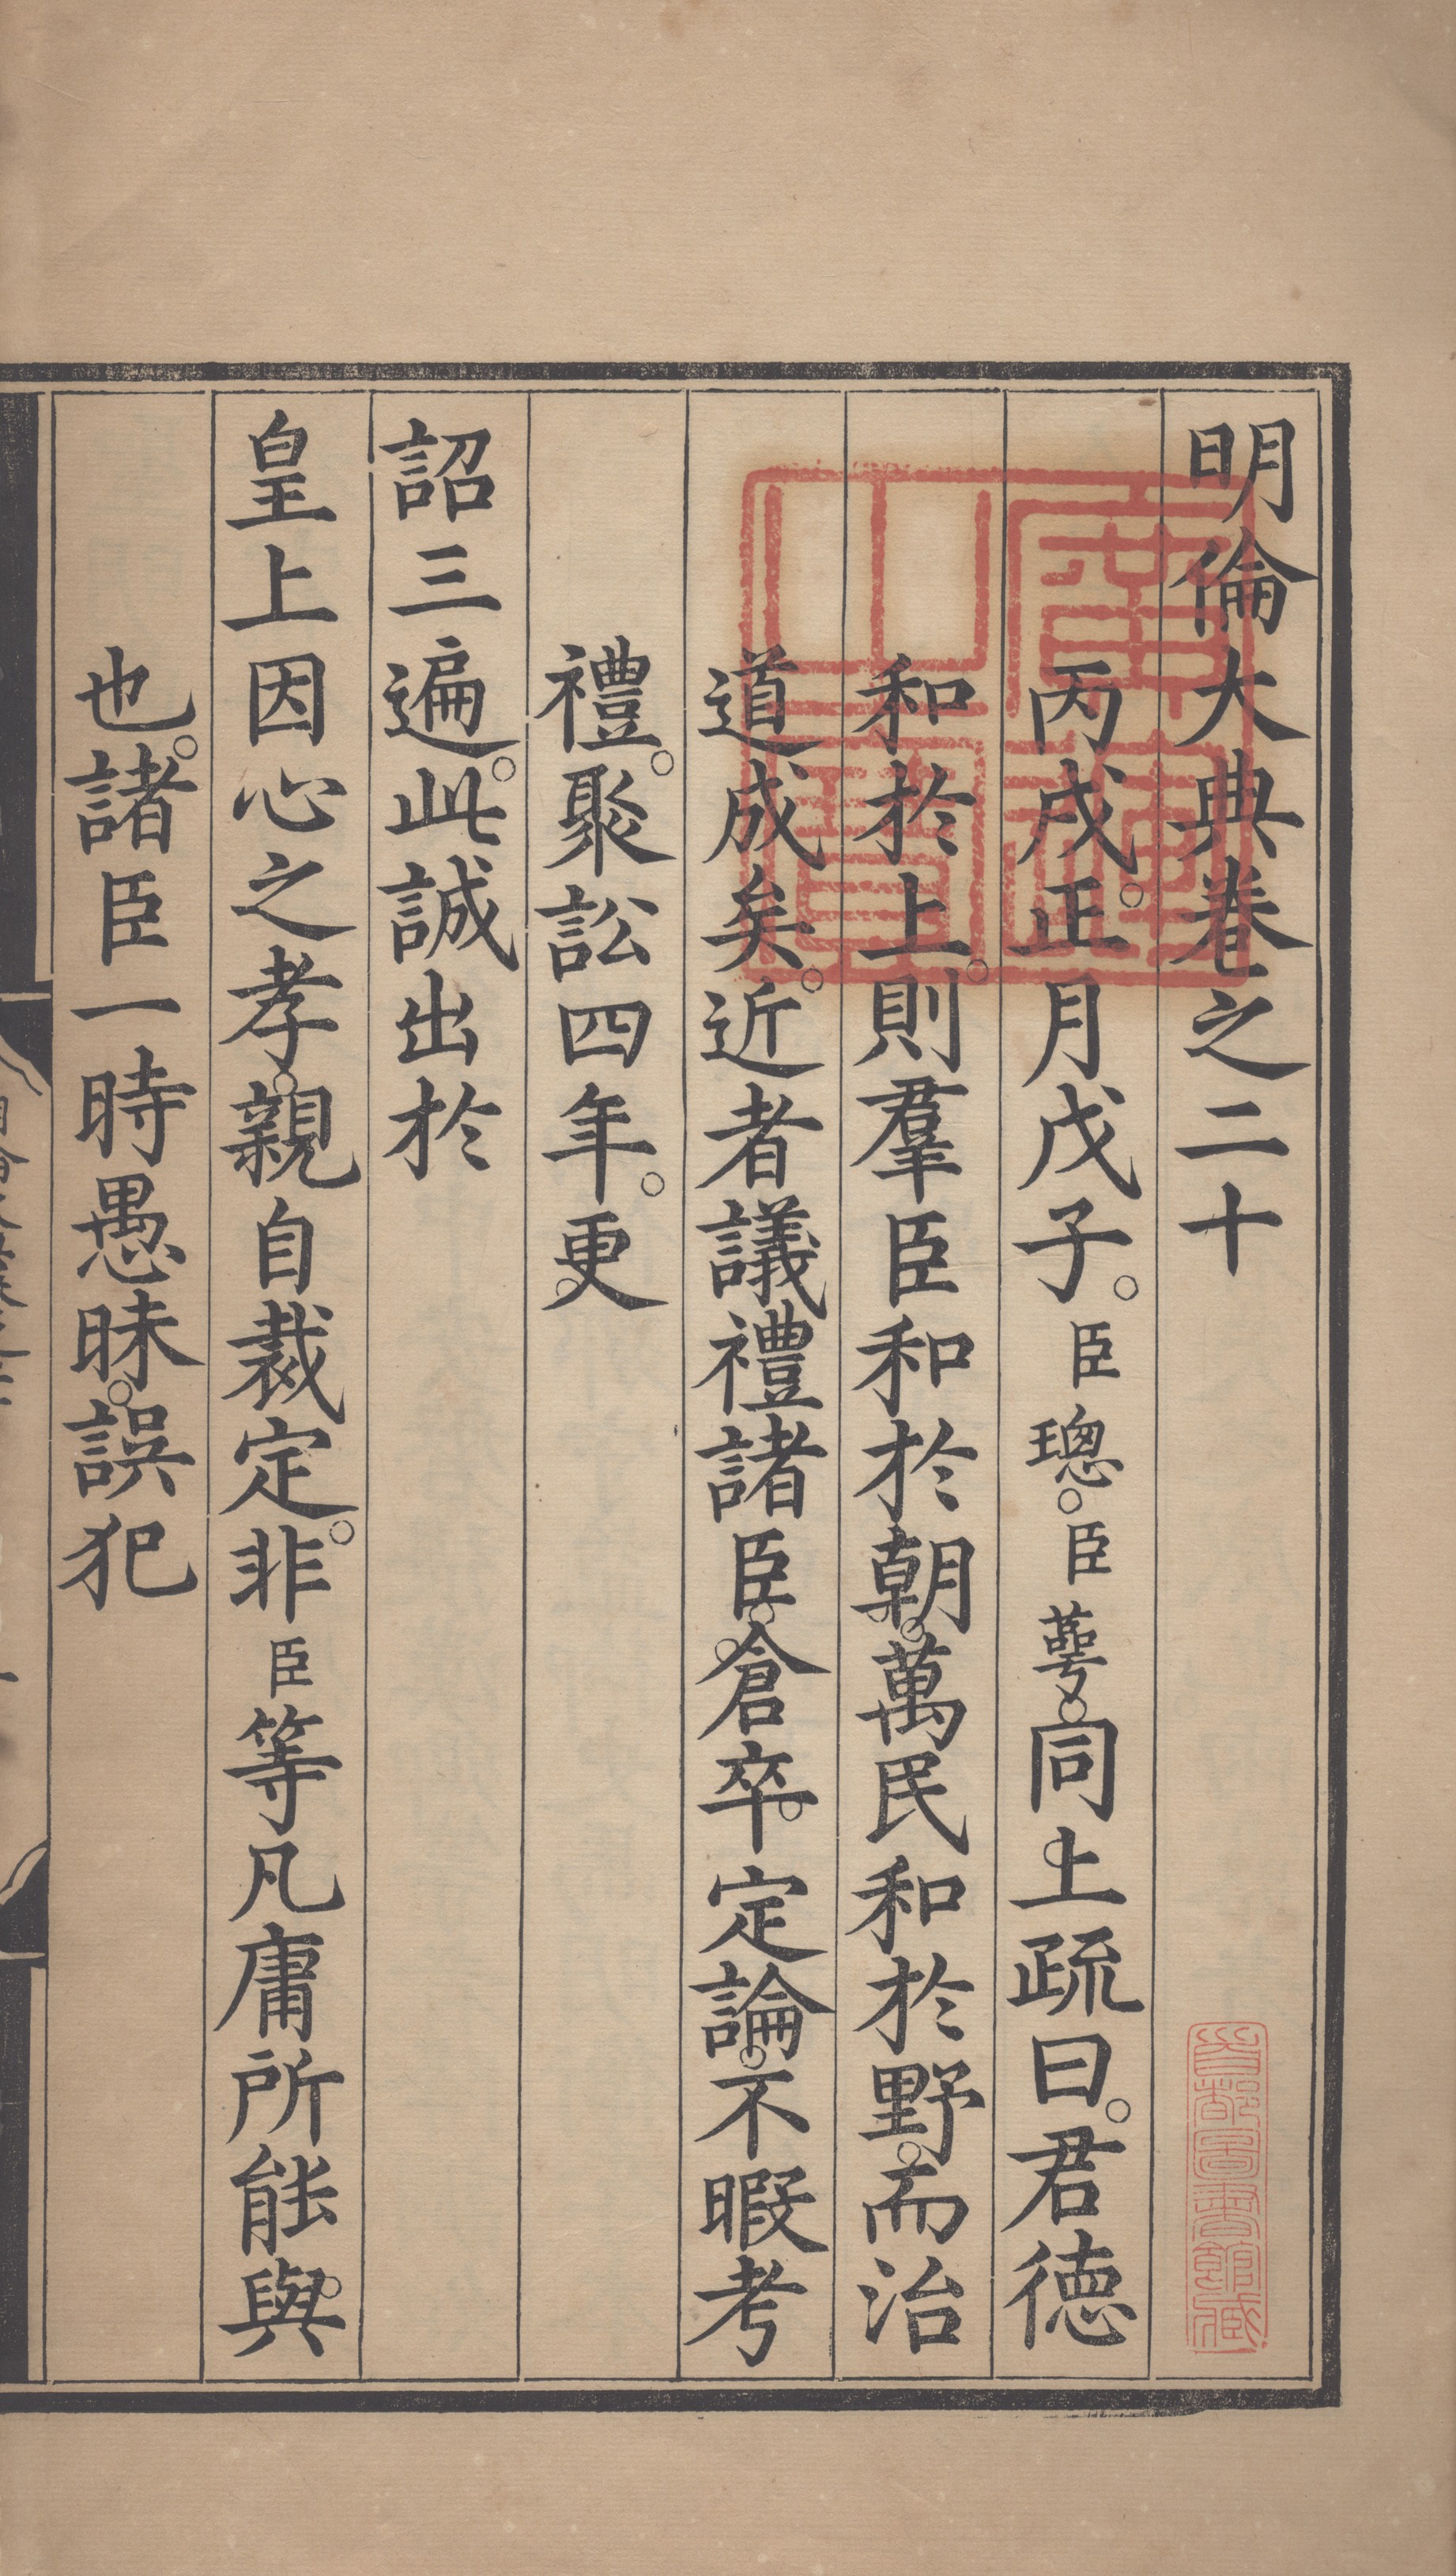 明倫大典卷之二十
丙戌。正月戊子。臣璁。臣萼。同上疏曰。君德
和於上。則羣臣和於朝。萬民和於野。而治
道成矣。近者議禮諸臣。倉卒定論。不暇考
禮。聚訟四年。更
詔三遍。此誠出於
皇上因心之孝。親自裁定。非臣等凡庸所能與
也。諸臣一時愚昧。誤犯
首都圖書館藏